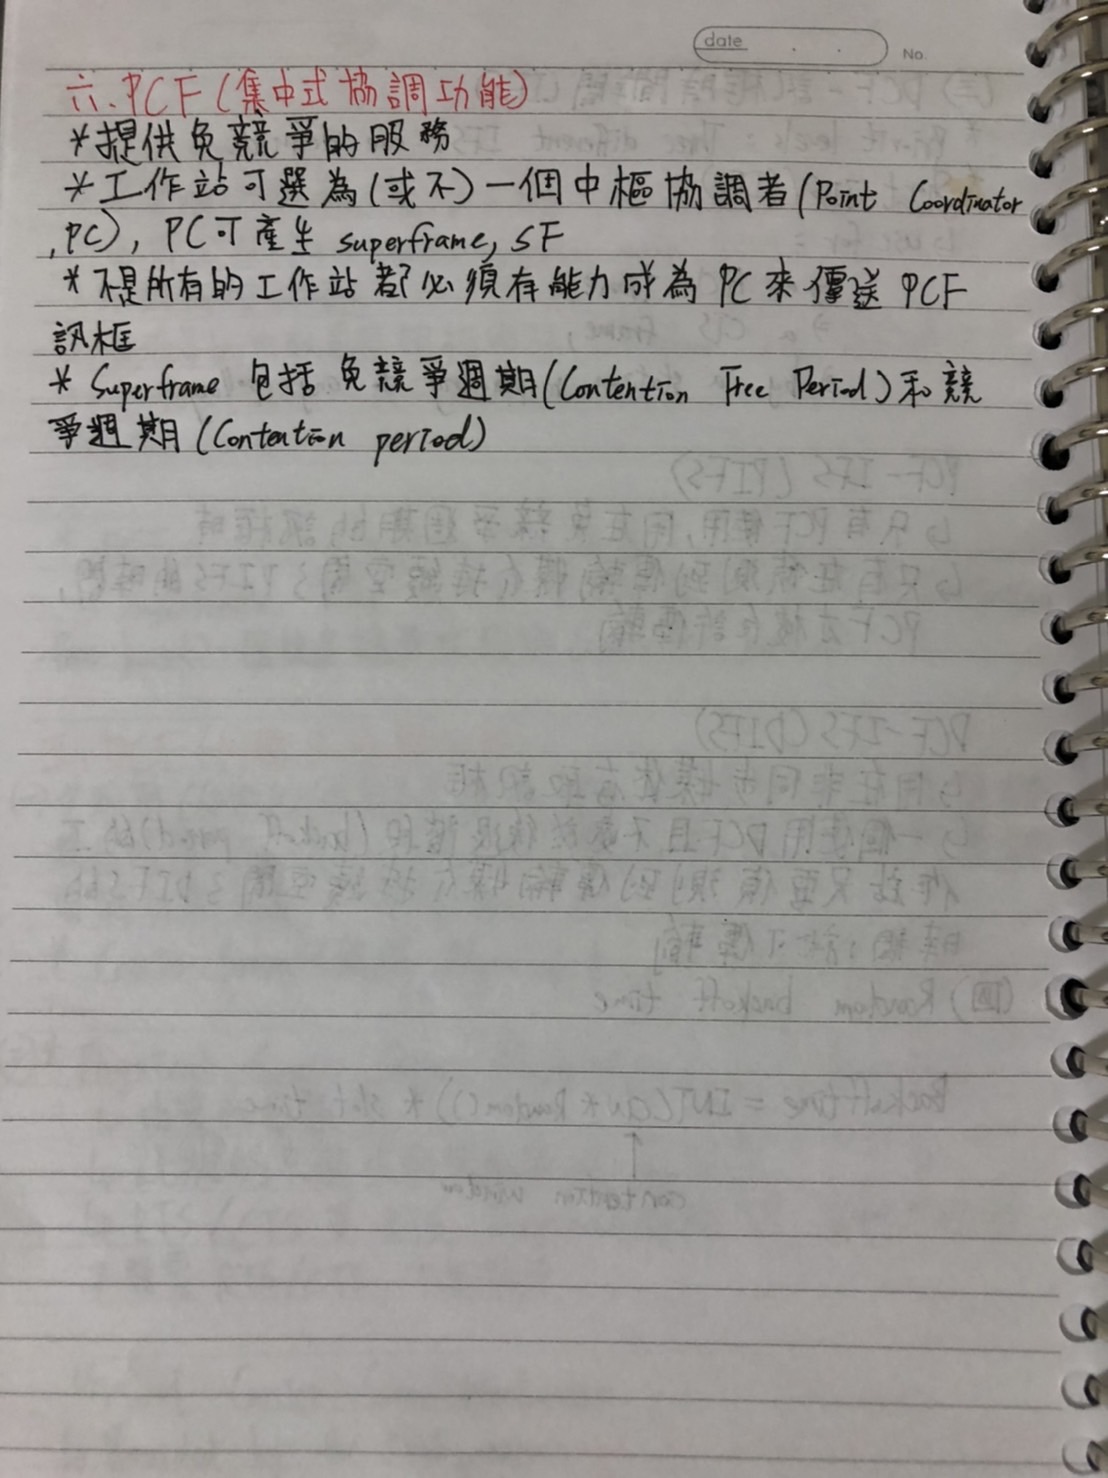 date
No.
六、PCF(集中式協調功能)
*提供免競爭的服務
*工作站可選為(或不)一個中樞協調者(Point Coordinator
,PC), PC可產生 superframe, SF
*不是所有的工作站都必須有能力成為 PC 來傳送 PCF
訊框
* Superframe 包括 免競爭週期(Contention Free Period)和競
爭週期(Contention period)